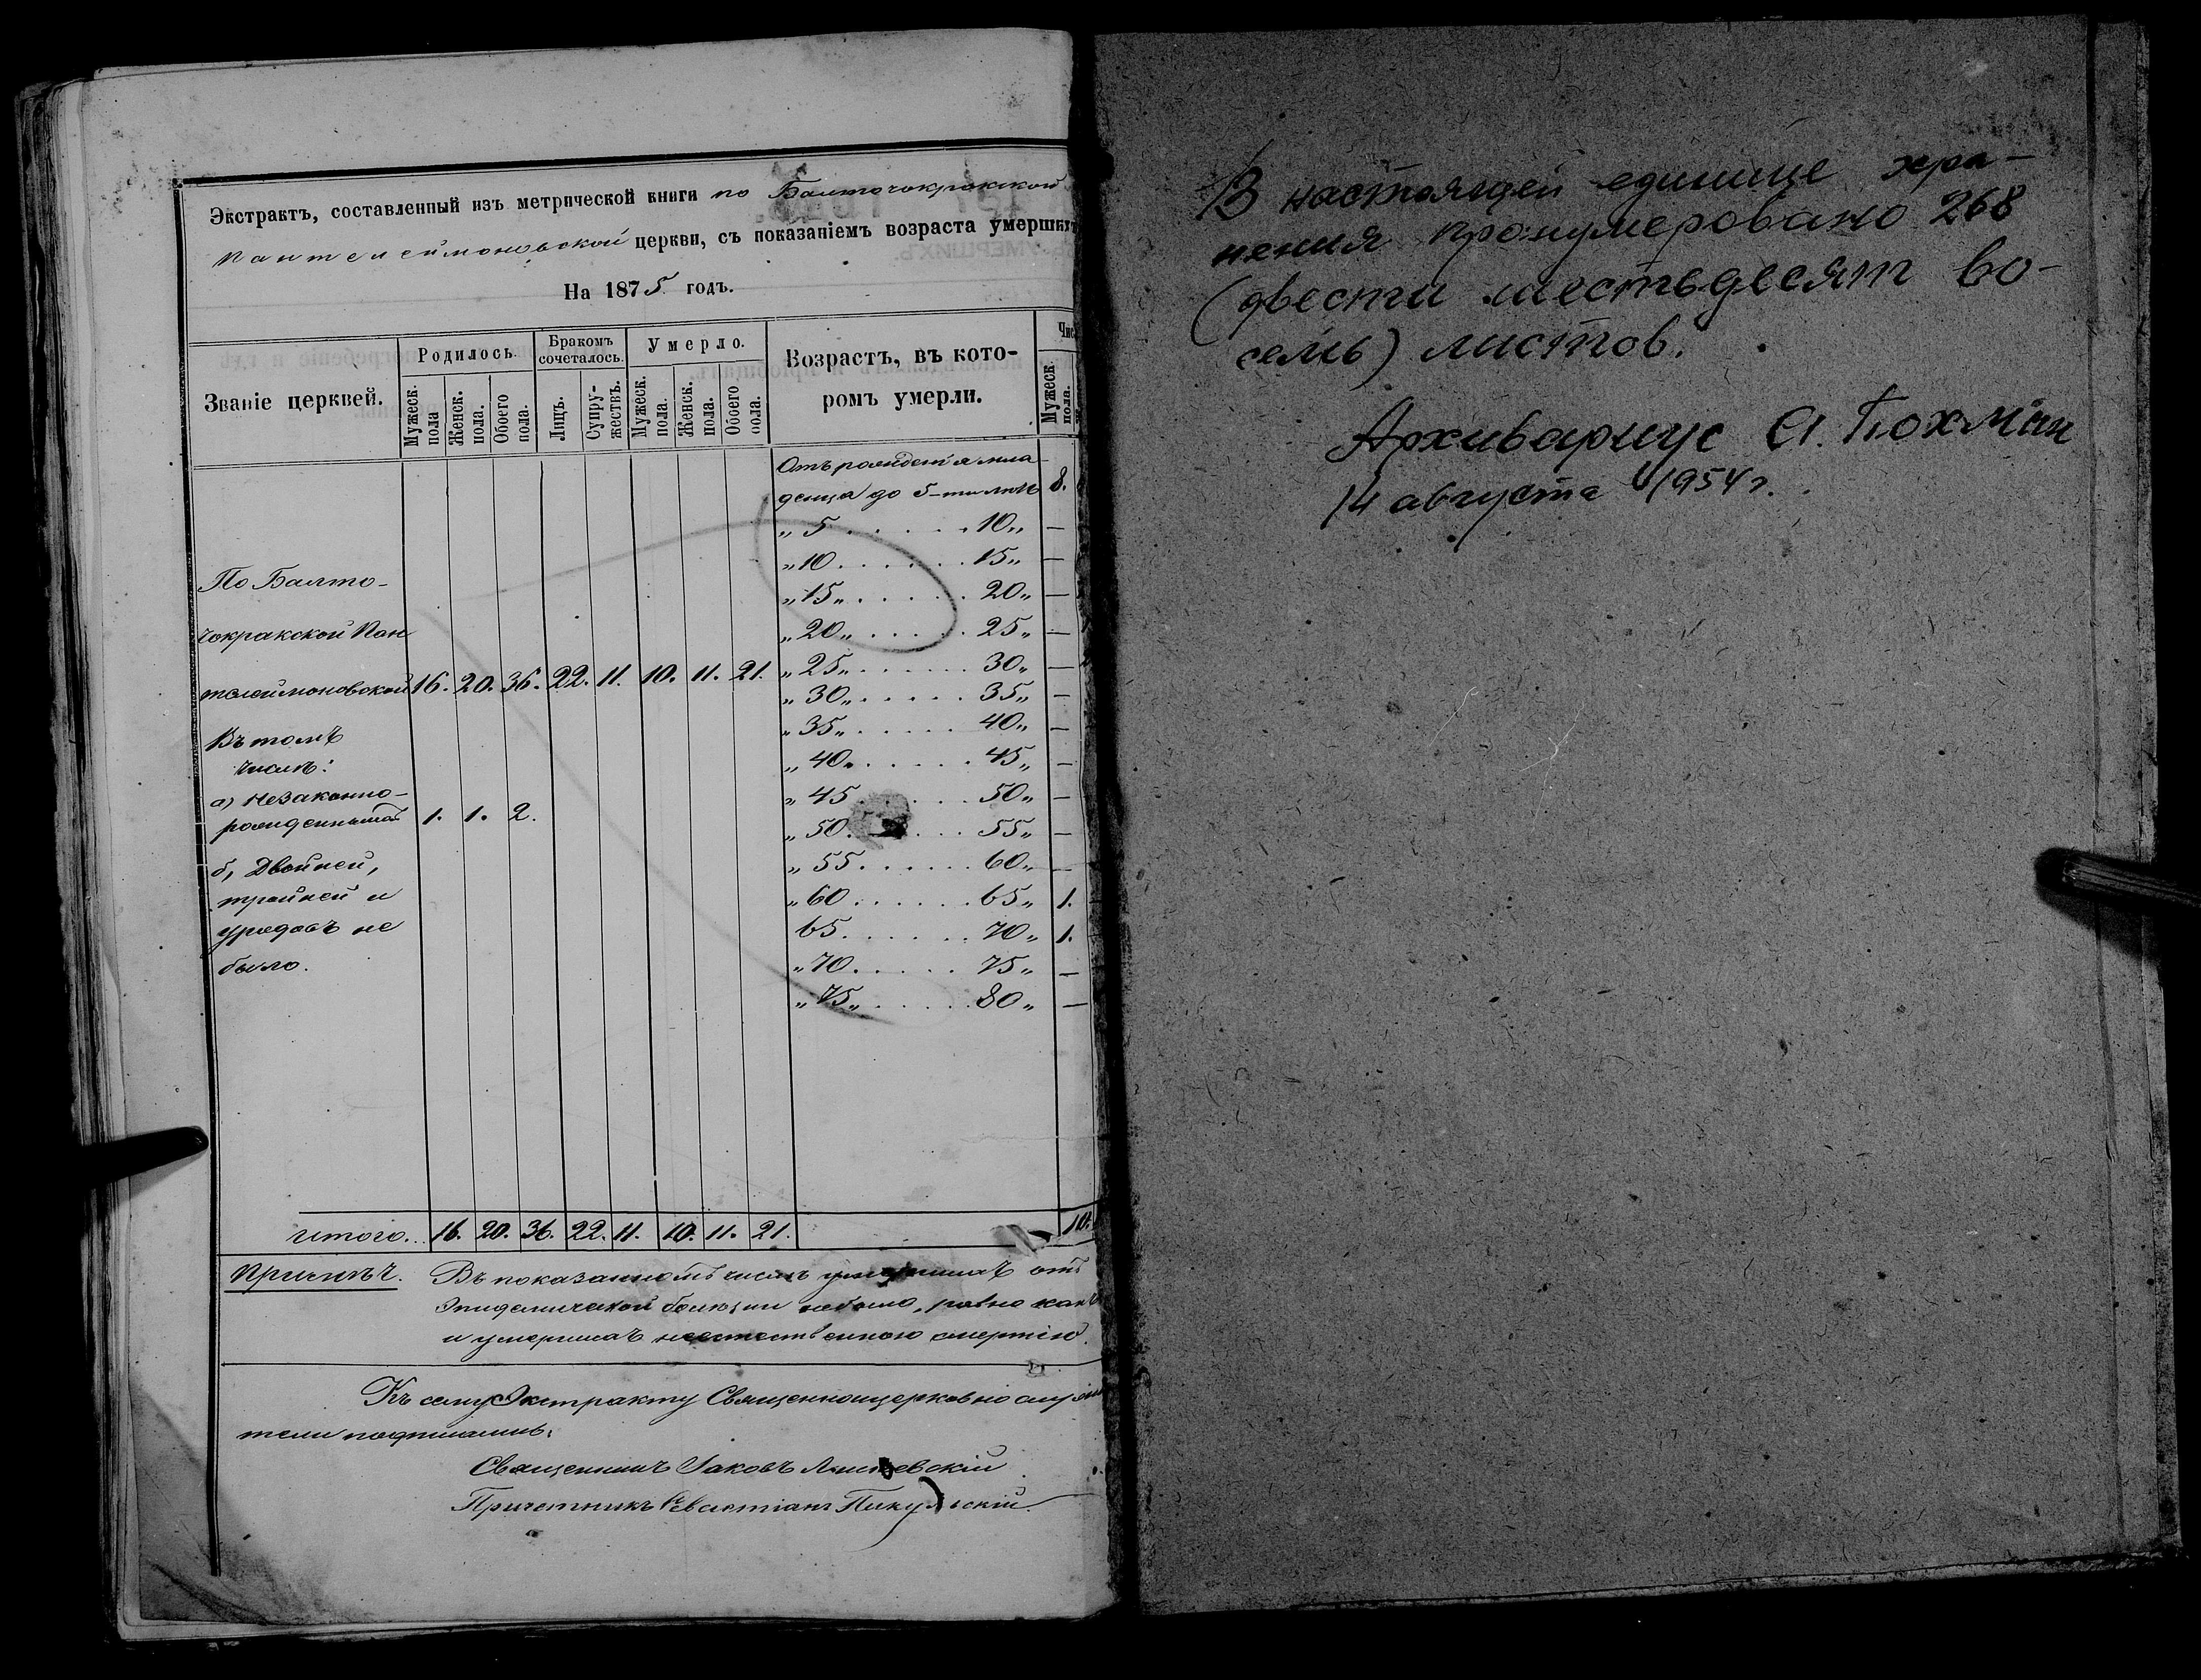 Экстрактъ, составленный изъ метрической книги по Балточокракской
Пантелеймоновской церкви, съ показаніемъ возраста умершихъ
На 1875 годъ.
Званіе церквей.
Родилось.
Мужеск. пола
Женск. пола.
Обоего пола.
Бракомъ сочеталось.
Лицъ.
Супружествъ.
Умерло.
Мужеск. пола.
Женск. пола.
Обоего пола.
Возрастъ, въ кото-
ромъ умерли.
Чис
Мужеск. пола.
Отъ рожденія мла-
денца до 5-ти лѣтъ 8.
„ 5 . . . . . . 10„ —
„ 10 . . . . . . 15„ —
„ 15„ . . . . . 20„ —
„ 20„ . . . . . 25„ —
„ 25„ . . . . . . 30„ —
„ 30„ . . . . . 35„ —
„ 35„ . . . . . 40„ —
„ 40„ . . . . . . 45„ —
„ 45 . . . . . . 50„ —
„ 50 . . . . . 55„ —
„ 55 . . . . . . 60„ —
„ 60 . . . . . . 65„ 1.
65 . . . . . . 70„ 1.
„ 70 . . . . . 75„ —
„ 75„ . . . . . 80„ —
По Балто-
чокракской Пан
телеймоновской 16. 20. 36. 22. 11. 10. 11. 21.
Въ томъ
числѣ:
а) Незаконно-
рожденныхъ 1. 1. 2.
б, Двойней,
тройней и
уродовъ не
было.
Итого. 16. 20. 36. 22. 11. 10. 11. 21. 10.
Примѣч. Въ показанномъ числѣ умершихъ отъ
эпидемической болѣзни небыло, равно какъ
и умершихъ неестественною смертію.
Къ сему Экстракту Священноцерковнослужи
тели подписались:
Священникъ Іаковъ
Причетникъ Севастіанъ Пикульскій
В настоящей единице хра-
нения пронумеровано 268
(двести шестьдесят во-
семь) листов.
Архивариус Бохман
14 августа 1954 г.